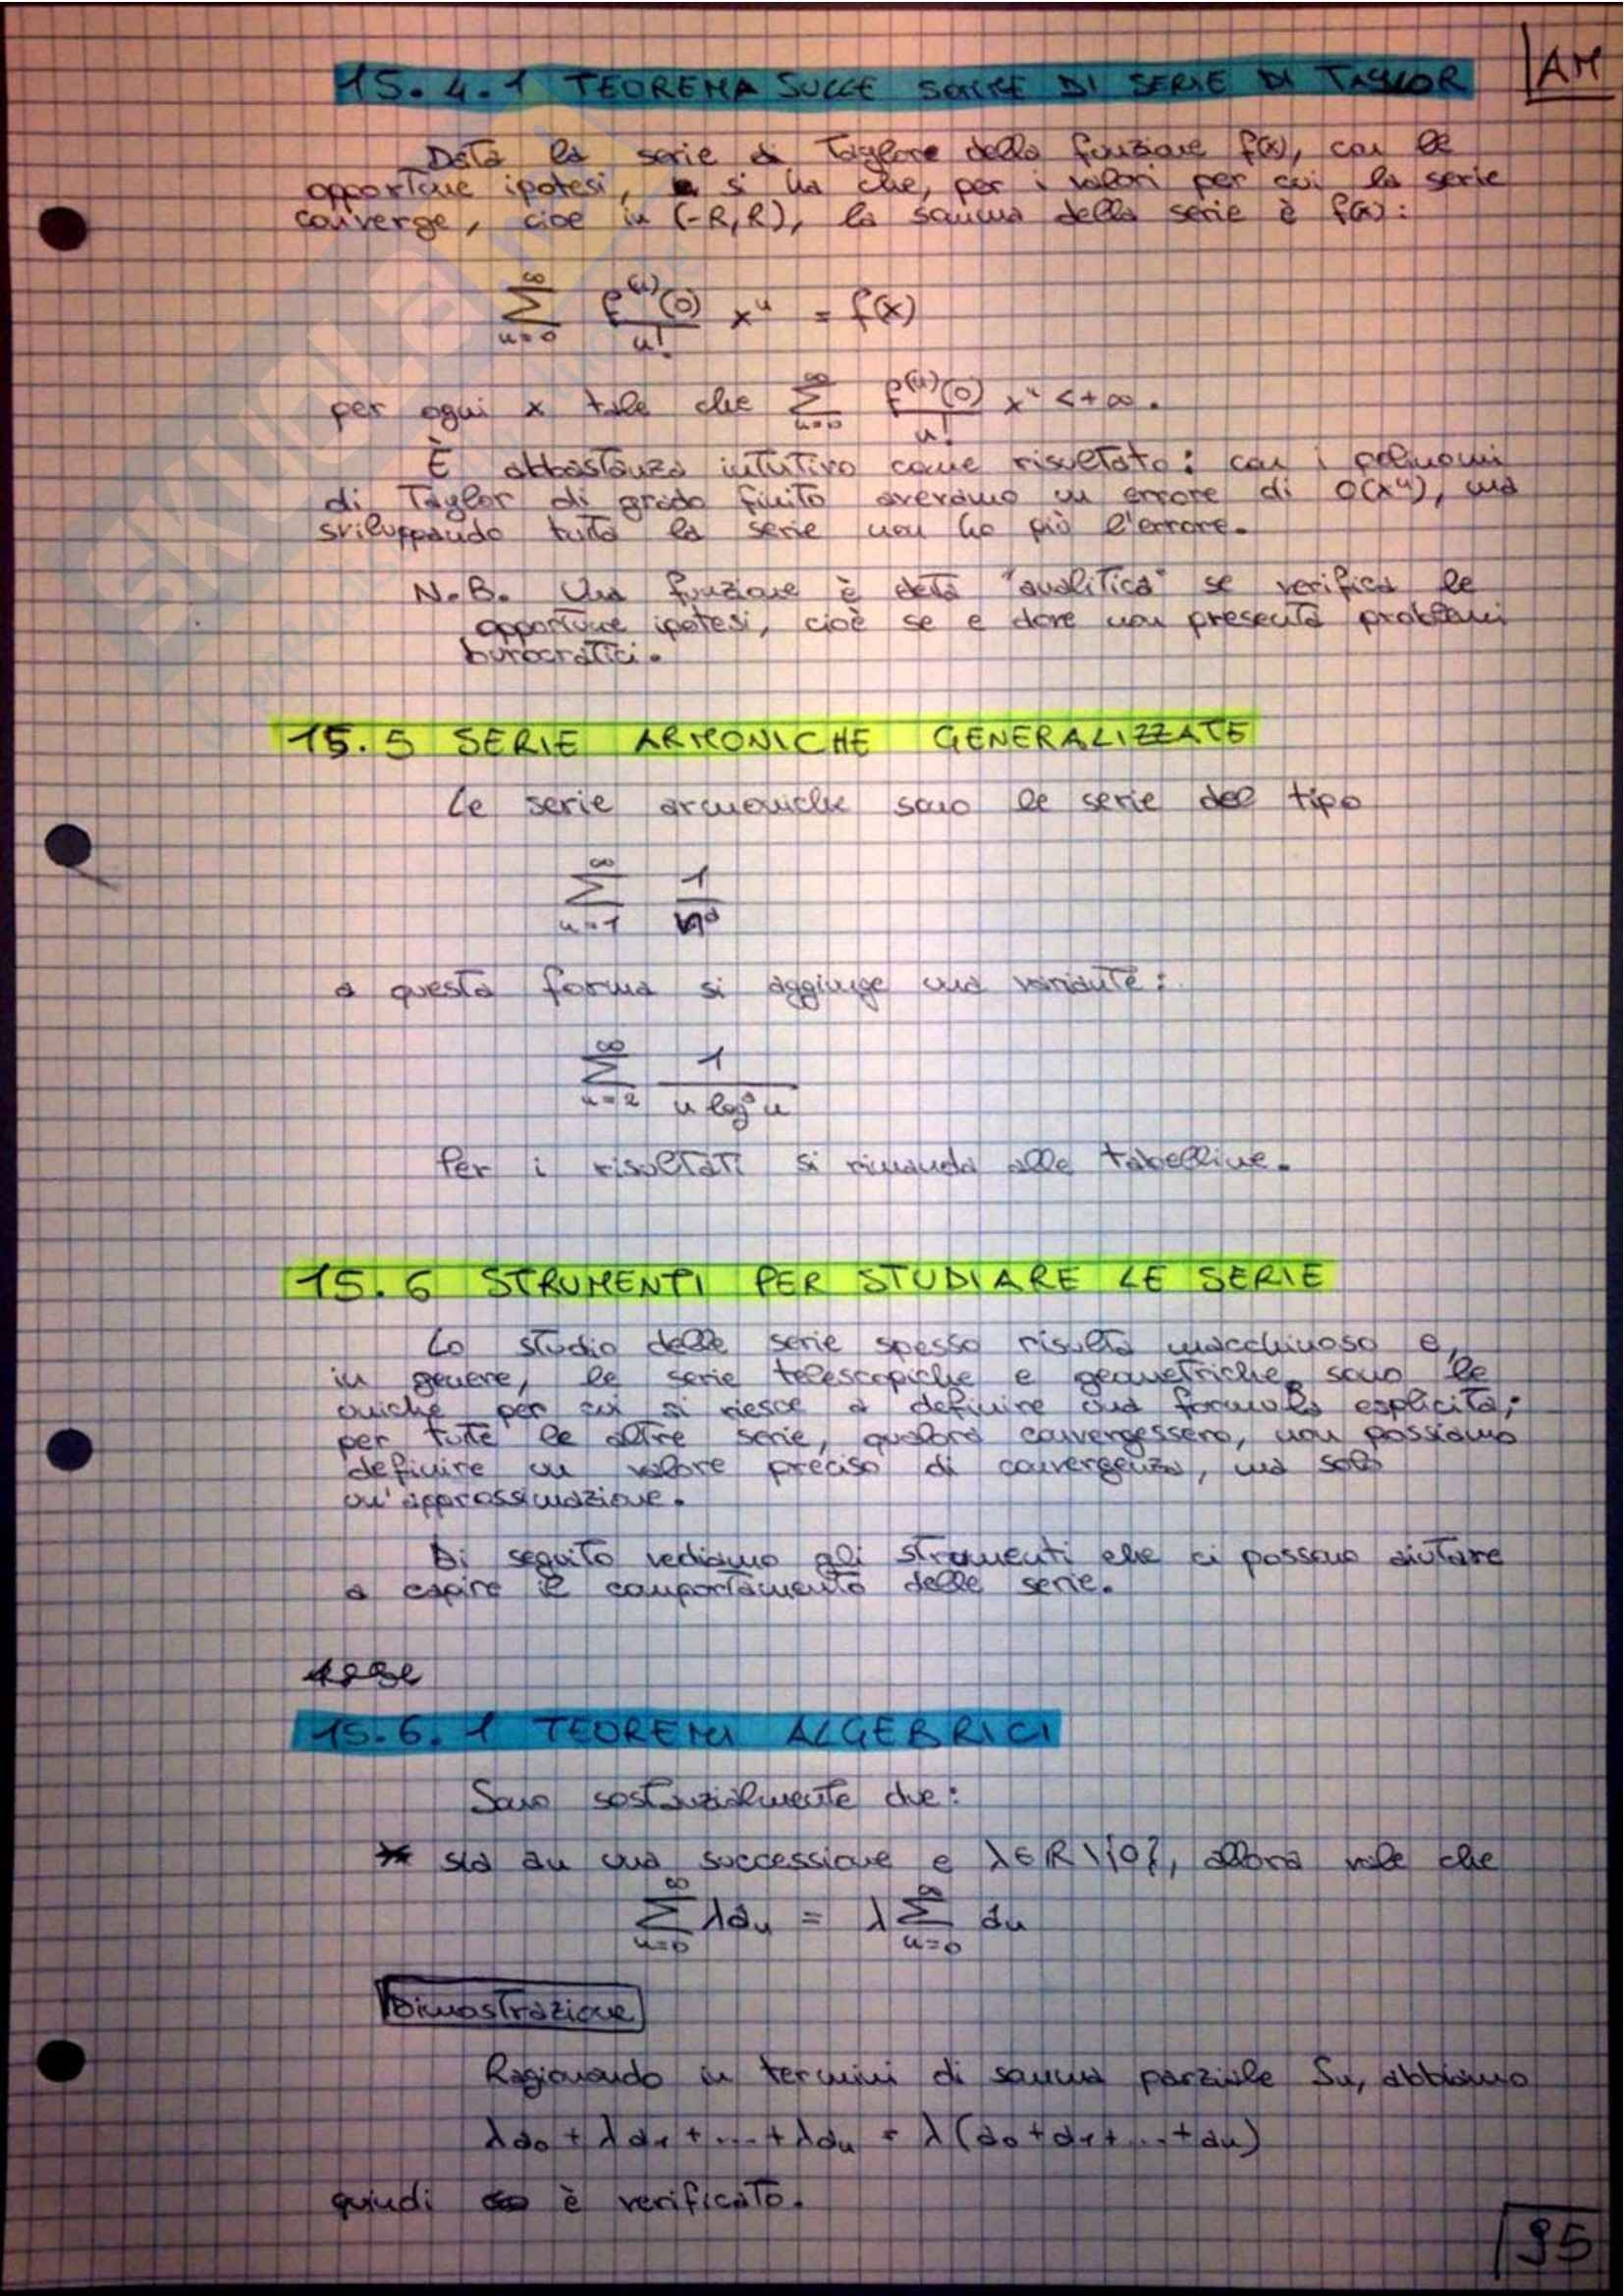 AM
15.4.1 TEOREMA SULLE SOMME DI SERIE DI TAYLOR
Data la serie di Taylore della funzione f(x), con le
opportune ipotesi, si ha che, per i valori per cui la serie
converge, cioe in (-R,R), la somma della serie è f(x):
∑_{n=0}^{∞} f^{(n)}(0)/n! x^n = f(x)
per ogni x tale che ∑_{n=0}^{∞} f^{(n)}(0)/n! x^n < +∞.
È abbastanza intuitivo come risultato: con i polinomi
di Taylor di grado finito avevamo un errore di o(x^n), ma
sviluppando tutta la serie non ho più l'errore.
N.B. Una funzione è detta "analitica" se verifica le
opportune ipotesi, cioè se e dove non presenta problemi
burocratici.
15.5 SERIE ARMONICHE GENERALIZZATE
Le serie armoniche sono le serie del tipo
∑_{n=1}^{∞} 1/n^a
a questa forma si aggiunge una variante:
∑_{n=2}^{∞} 1/(n log^a n)
Per i risultati si rimanda alle tabelline.
15.6 STRUMENTI PER STUDIARE LE SERIE
Lo studio delle serie spesso risulta macchinoso e,
in genere, le serie telescopiche e geometriche sono le
uniche per cui si riesce a definire una formula esplicita;
per tutte le altre serie, qualora convergessero, non possiamo
definire un valore preciso di convergenza, ma solo
un'approssimazione.
Di seguito vediamo gli strumenti che ci possono aiutare
a capire il comportamento delle serie.
15.6.1 TEOREMI ALGEBRICI
Sono sostanzialmente due:
* sia an una successione e λ∈R\{0}, allora vale che
∑_{n=0}^{∞} λan = λ ∑_{n=0}^{∞} an
Dimostrazione
Ragionando in termini di somma parziale Sn, abbiamo
λa0 + λa1 + ... + λan = λ(a0+a1+...+an)
quindi è verificato.
95